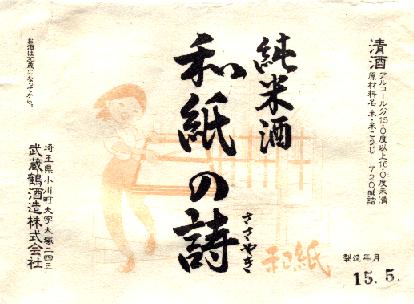 清酒
アルコール分15.0度以上16.0度未満
原材料名 米・米こうじ
純米酒
和紙の詩
ささやき
和紙
製造年月
15.5.
お酒は二十歳になってから。
埼玉県小川町大字大塚二四三
武蔵鶴酒造株式会社